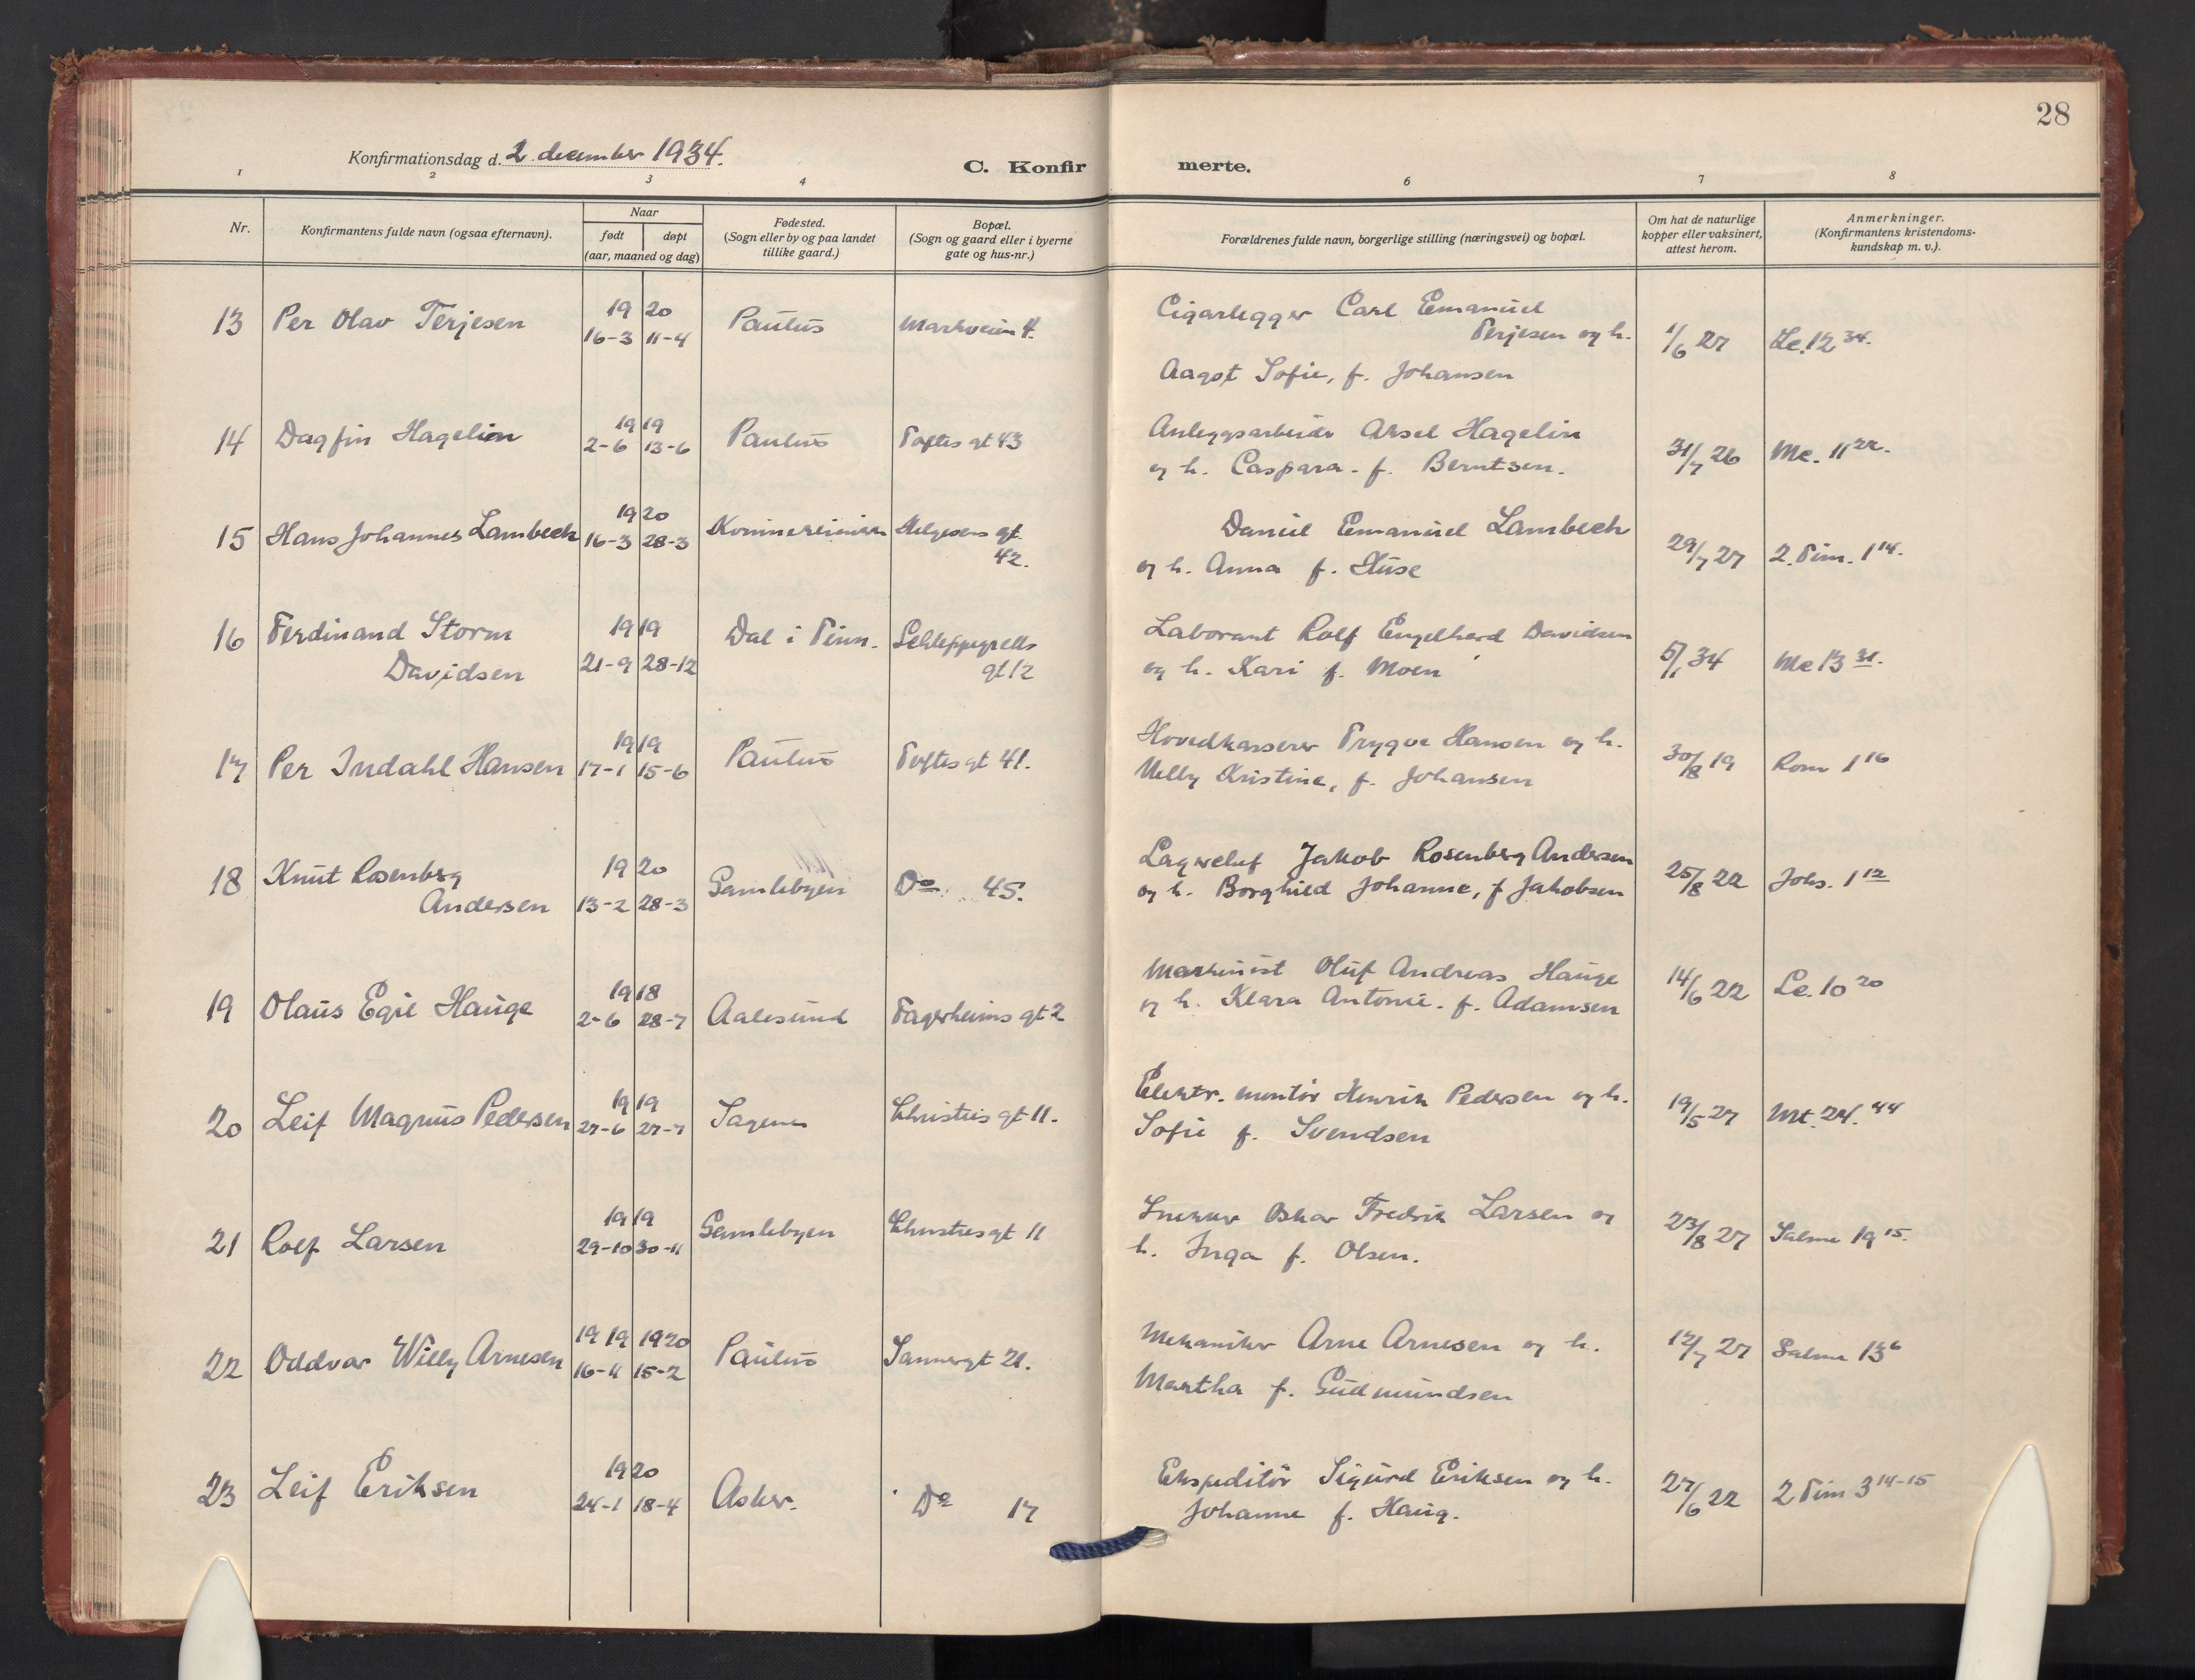 28
Konfirmationsdag d. 2. december 1934.
C. Konfirmerte.
1 2 3 4 6 7 8
Nr.
Konfirmantens fulde navn (ogsaa efternavn).
Naar
født døpt
(aar, maaned og dag)
Fødested.
(Sogn eller by og paa landet
tillike gaard.)
Bopæl.
(Sogn og gaard eller i byerne
gate og hus-nr.)
Forældrenes fulde navn, borgerlige stilling (næringsvei) og bopæl.
Om hat de naturlige
kopper eller vaksinert,
attest herom.
Anmerkninger.
(Konfirmantens kristendoms-
kundskap m. v.).
13 Per Olav Terjesen 19 20 16-3 11-4 Paulus Markveien 4.
Cigarlegger Carl Emanuel
Terjesen og h.
Aagot Sofie, f. Johansen
1/6 27 Lc. 12 34.
14 Dagfin Hagelin 19 19 2-6 13-6 Paulus Toftes gt 43
Anleggsarbeider Aksel Hagelin
og h. Caspara. f. Berntsen.
31/7 26 Mc. 11 22.
15 Hans Johannes Lambech 19 20 16-3 28-3 Helgesens gt
42.
Daniel Emanuel Lambech
og h. Anna f. Huse
29/7 27 2. Tim. 1 14.
16 Ferdinand Storm
Davidsen
19 19 21-9 28-12 Dal i Tinn. Schleppegrells
gt 12
Laborant Rolf Engelhard Davidsen
og h. Kari f. Moen
5/1 34 Mc 13 31.
17 Per Indahl Hansen 19 19 17-1 15-6 Paulus Toftes gt 41.
Hovedkasserer Trygve Hansen og h.
Nelly Kristine, f. Johansen
30/8 19 Rom 1 16
18 Knut Rosenberg
Andersen
19 20 13-2 28-3 Gamlebyen Do. 45.
Lagerchef Jakob Rosenberg Andersen
og h. Borghild Johanne, f Jakobsen
25/8 22 Johs. 1 12
19 Olaus Egil Hauge 19 18 2-6 28-7 Aalesund Fagerheims gt 2
Maskinist Oluf Andreas Hauge
og h. Klara Antonie. f. Adamsen
14/6 22 Lc. 10 20
20 Leif Magnus Pedersen 19 19 27-6 27-7 Sagene Christies gt 11.
Elektr. montør Henrik Pedersen og h.
Sofie f. Svendsen
19/5 27 Mt. 24. 44
21 Rolf Larsen 19 19 29-10 30-11 Gamlebyen Christies gt 11
Snekker Oskar Fredrik Larsen og
h. Inga f. Olsen.
23/8 27 Salme 19 15.
22 Oddvar Willy Arnesen 19 19 1920 16-11 15-2 Paulus Sannergt 21.
Mekaniker Arne Arnesen og h.
Martha f. Gudmundsen
12/7 27 Salme 13 6
23 Leif Eriksen 19 20 24-1 18-4 Asker. Do 17
Ekspeditør Sigurd Eriksen og h.
Johanne f. Haug.
27/6 22 2 Tim 3 14-15